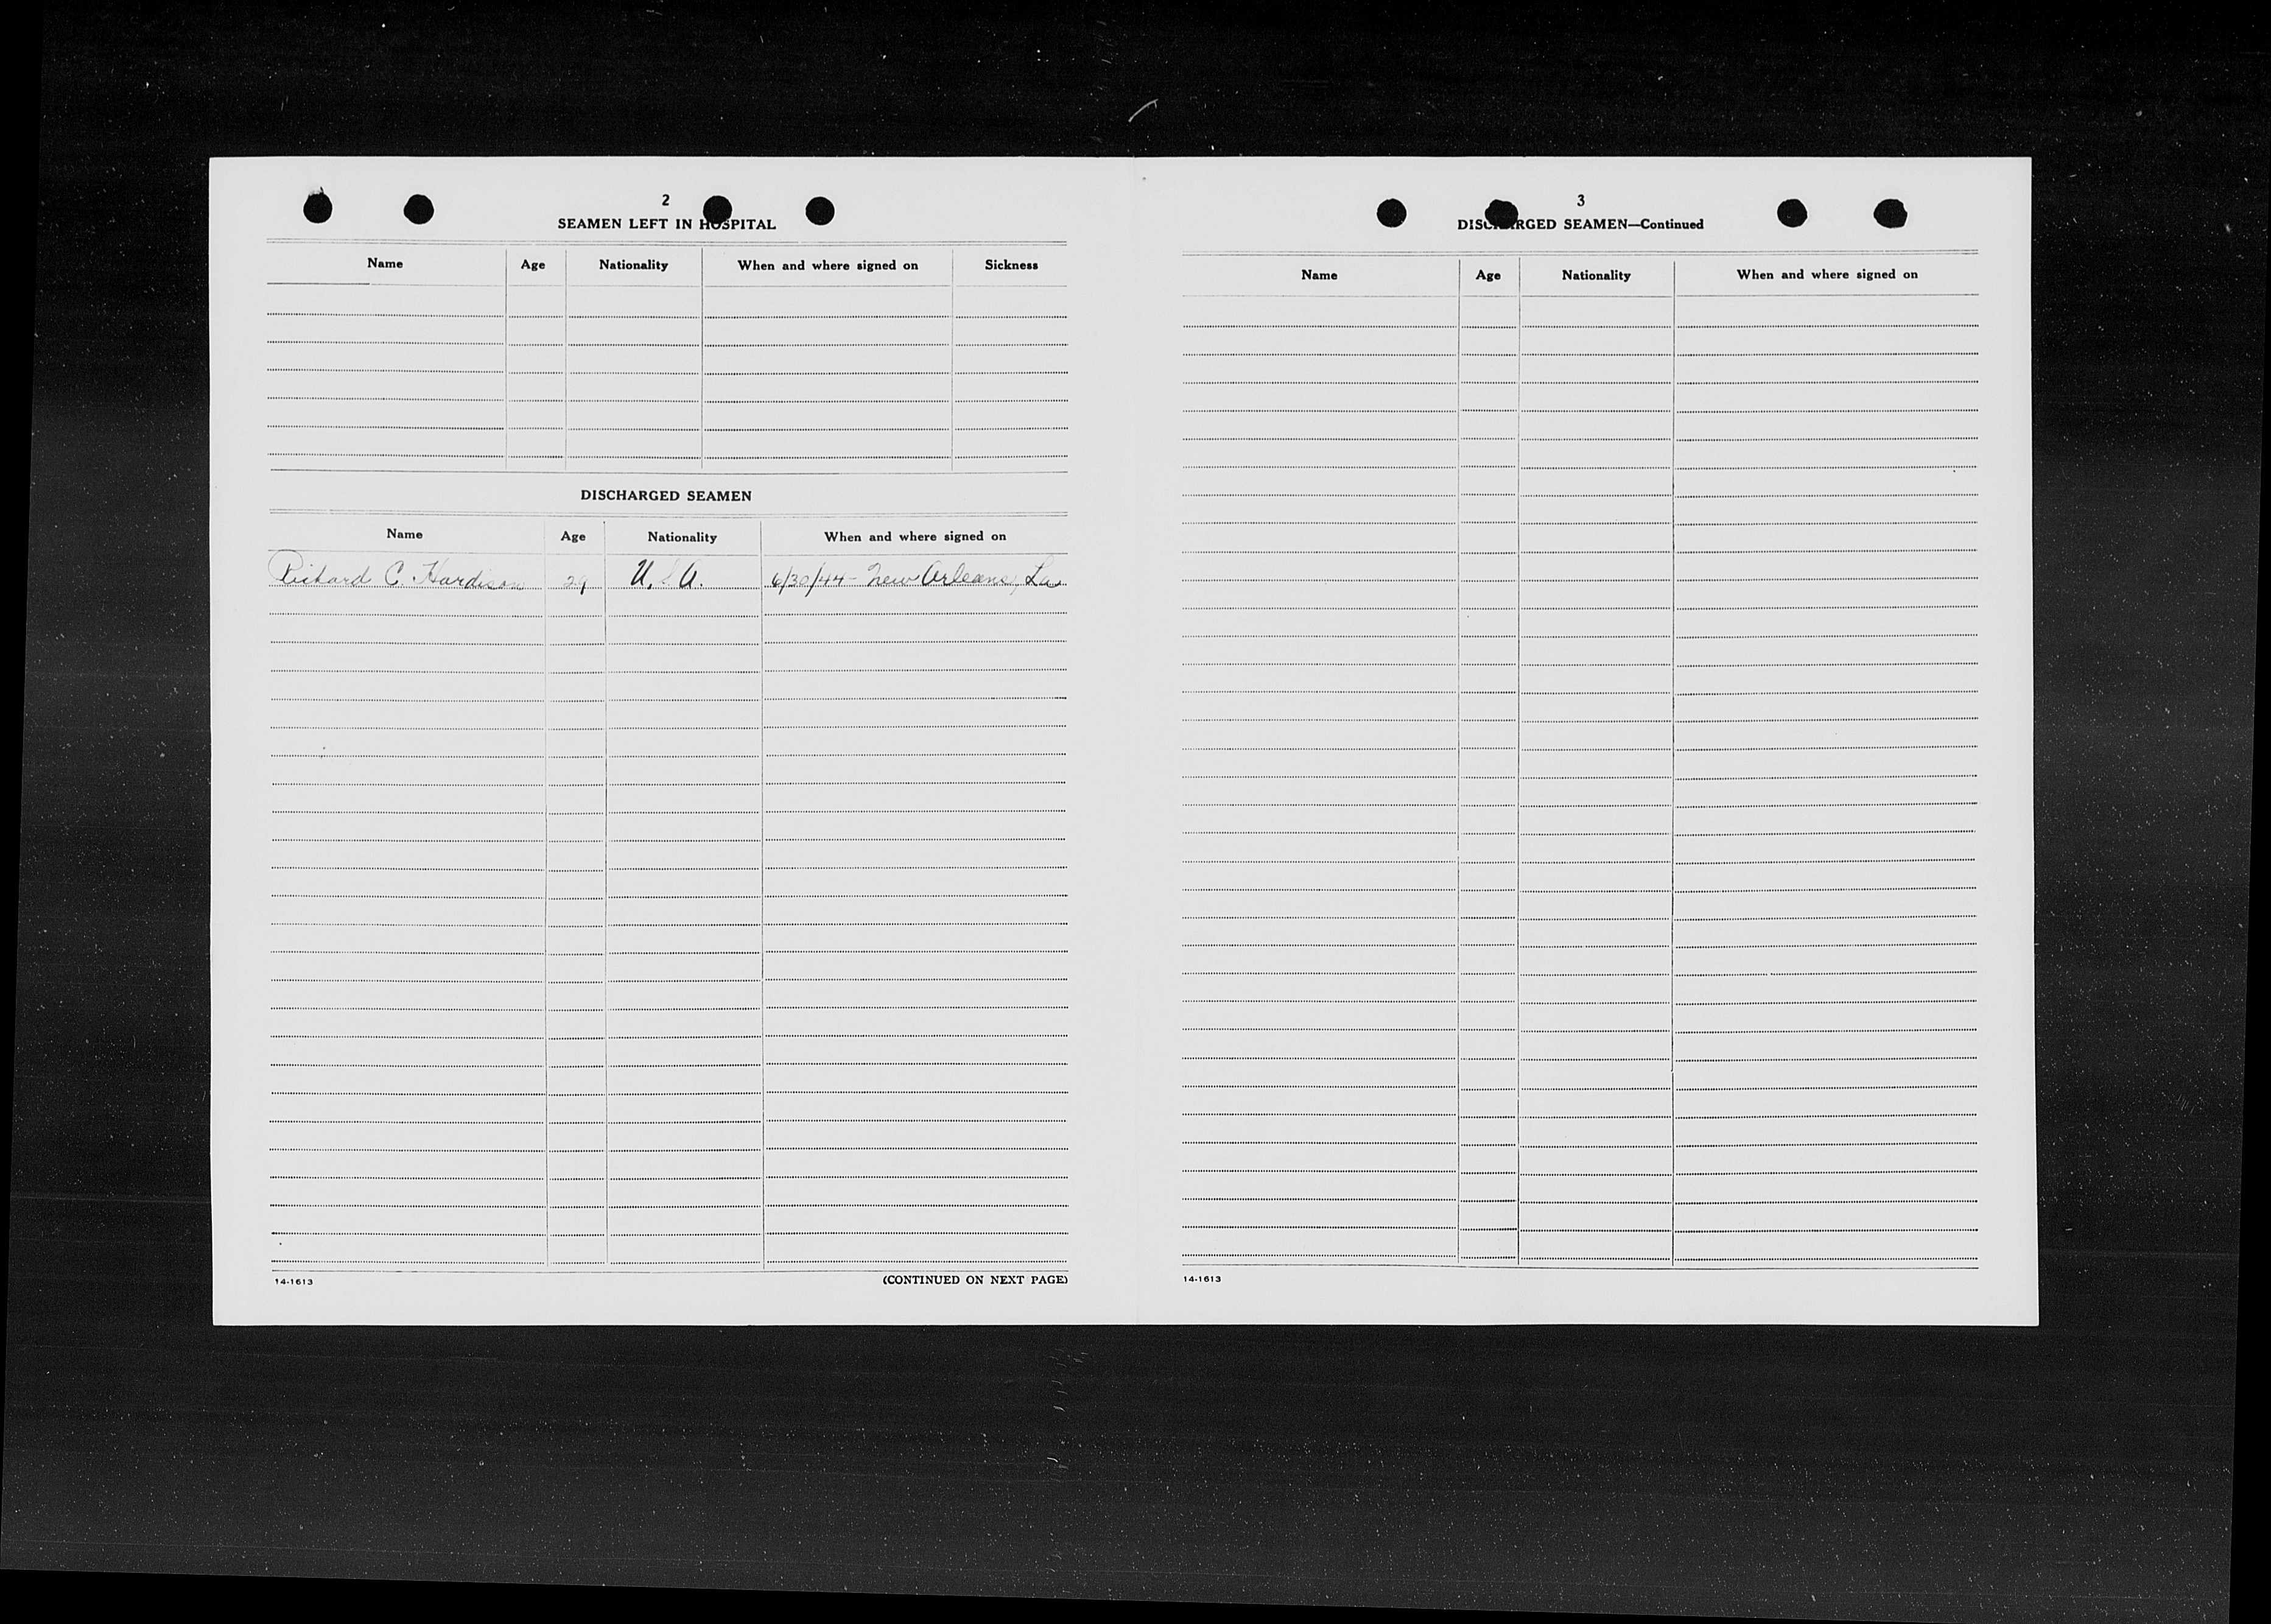 2
SEAMEN LEFT IN HOSPITAL
Name Age Nationality When and where signed on Sickness
DISCHARGED SEAMEN
Name Age Nationality When and where signed on
Richard C. Hardison 29 U.S.A. 6/30/44 - New Orleans, La
14-1613 (CONTINUED ON NEXT PAGE)
3
DISCHARGED SEAMEN—Continued
Name Age Nationality When and where signed on
14-1613